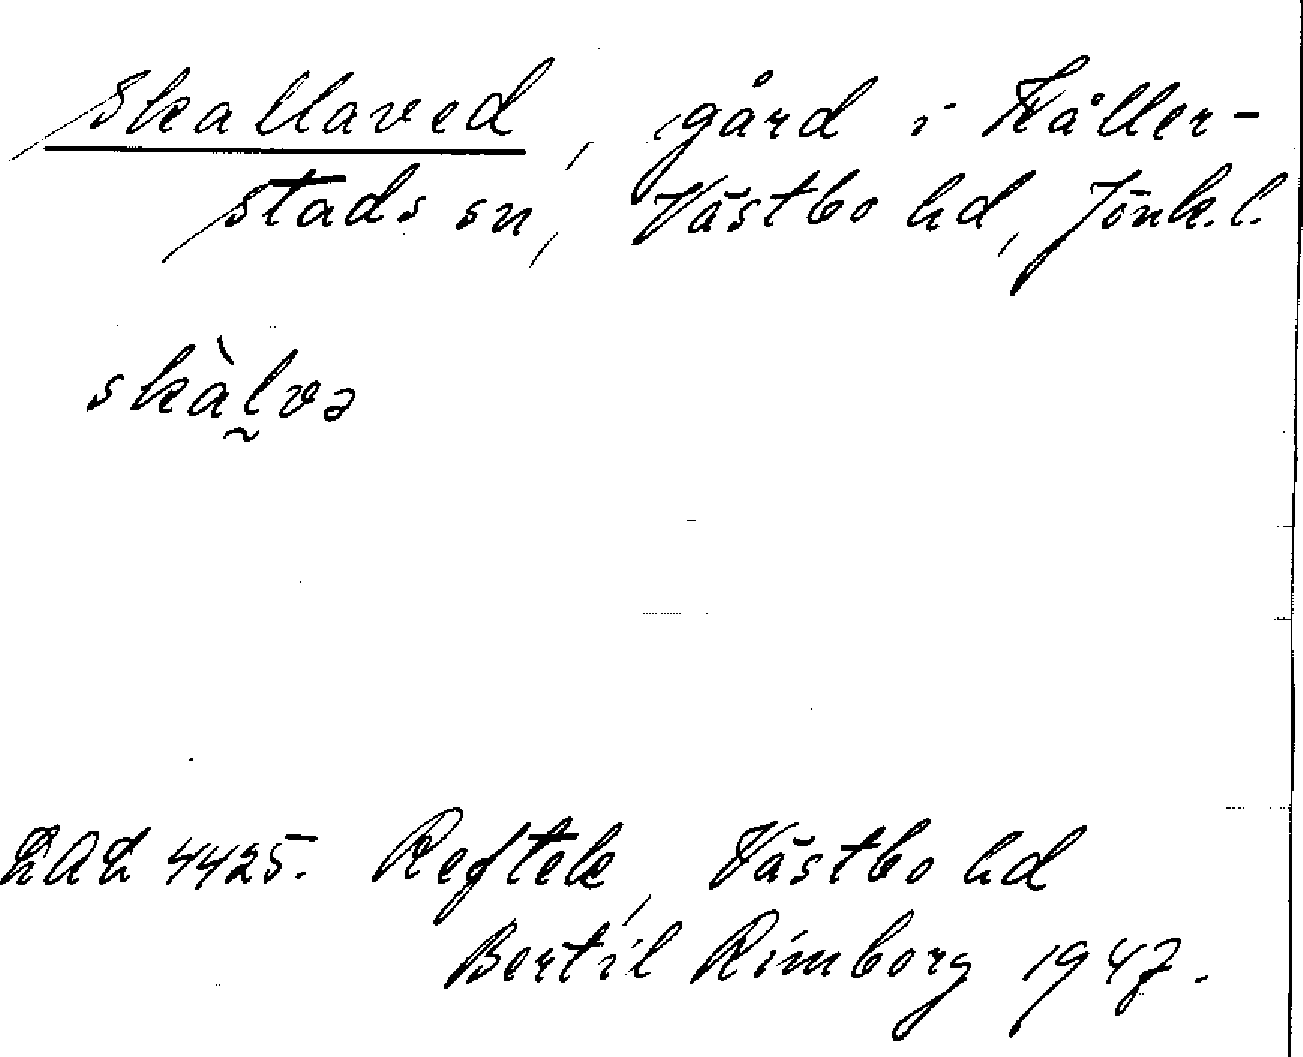 Skallaved, gård i Kåller-
stads sn, Västbo hd, Jönk.l.
skàl̰və
LAL 4425. Reftele, Västbo hd
Bertil Rimborg 1947.